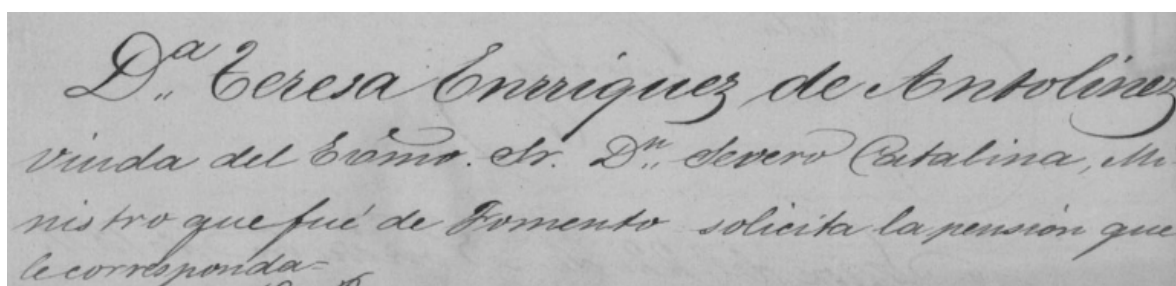 Dª Teresa Enrriquez de Antolinez
viuda del Excmo. Sr. Dn. Severo Catalina, Mi
nistro que fué de Fomento solicita la pensión que
le corresponda=